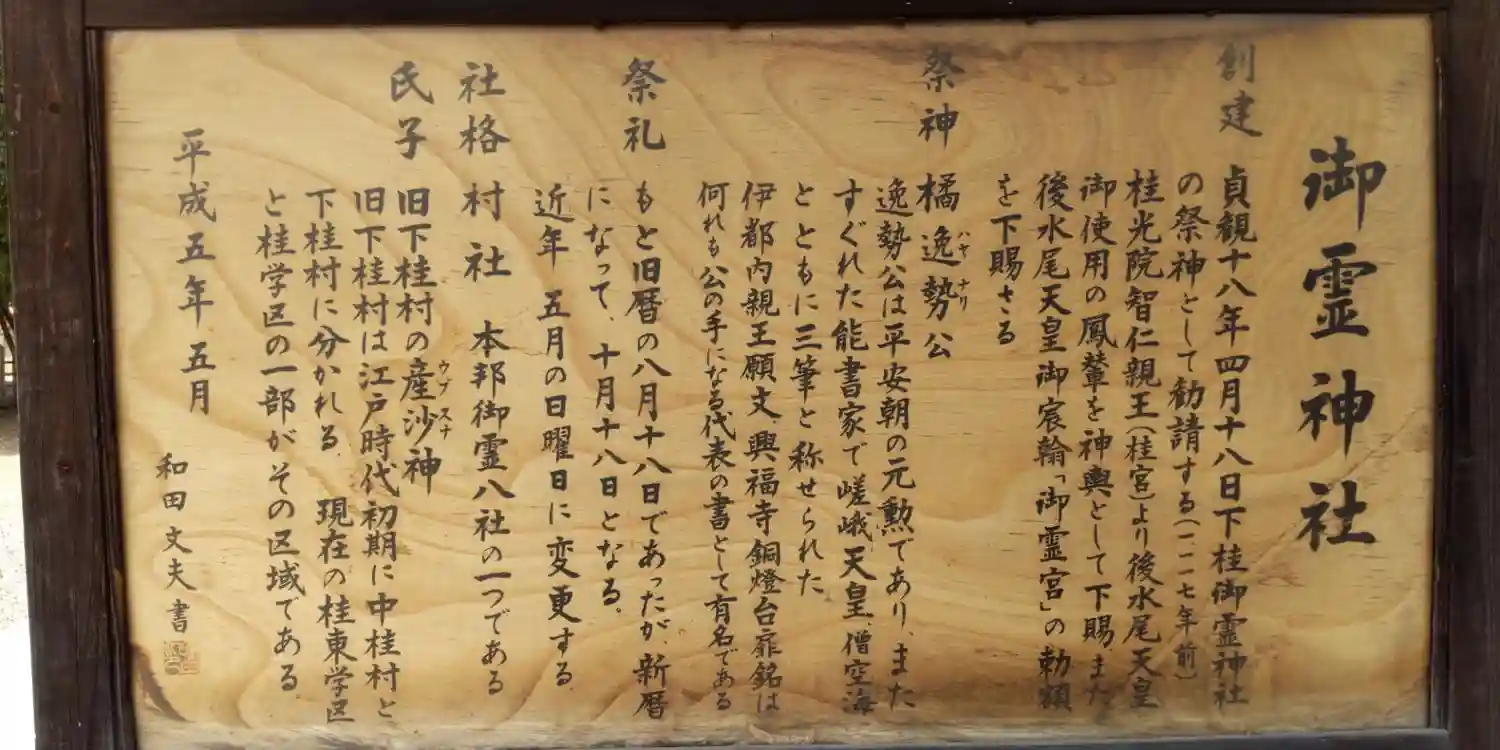 御霊神社
創建 貞観十八年四月十八日下桂御霊神社
の祭神として勧請する(一、一一七年前)
桂光院智仁親王(桂宮)より後水尾天皇
御使用の鳳輦を神輿として下賜、また
後水尾天皇御宸翰「御霊宮」の勅額
を下賜さる
祭神 橘逸勢公
ハヤ ナリ
逸勢公は平安朝の元勲であり、また
すぐれた能書家で嵯峨天皇、僧空海
とともに三筆と称せられた
伊都内親王願文、興福寺銅燈台扉銘は
何れも公の手になる代表の書として有名である
祭礼 もと旧暦の八月十八日であったが、新暦
になって、十月十八日となる。
近年 五月の日曜日に変更する
社格 村社 本邦御霊八社の一つである
氏子 旧下桂村の産沙神
ウブ スナ
旧下桂村は江戸時代初期に中桂村と
下桂村に分かれる。現在の桂東学区
と桂学区の一部がその区域である。
平成五年五月
和田文夫書